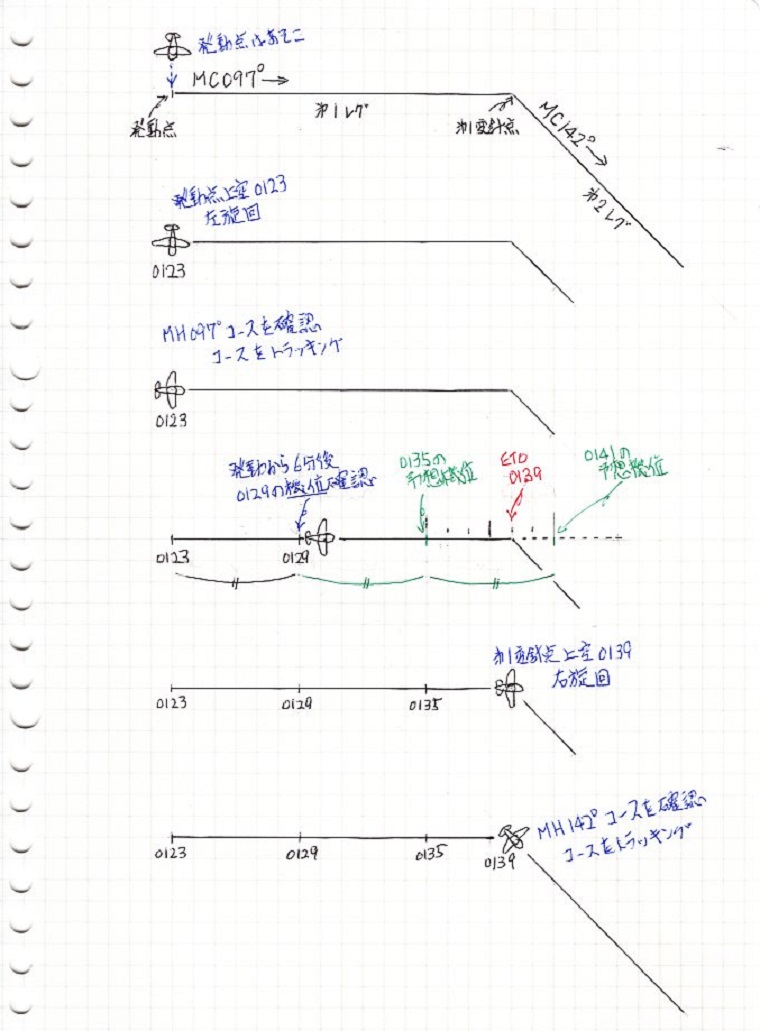 発動点はあそこ
MC097°→
発動点
第1レグ
第1変針点
MC142°→
第2レグ
発動点上空0123
左旋回
0123
MH097° コースを確認
コースをトラッキング
0123
発動から6分後
0129の機位確認
0135の
予想機位
ETO
0139
0141の
予想機位
0123
0129
第1変針点上空0139
右旋回
0123
0129
0135
MH142° コースを確認
コースをトラッキング
0123
0129
0135
0139